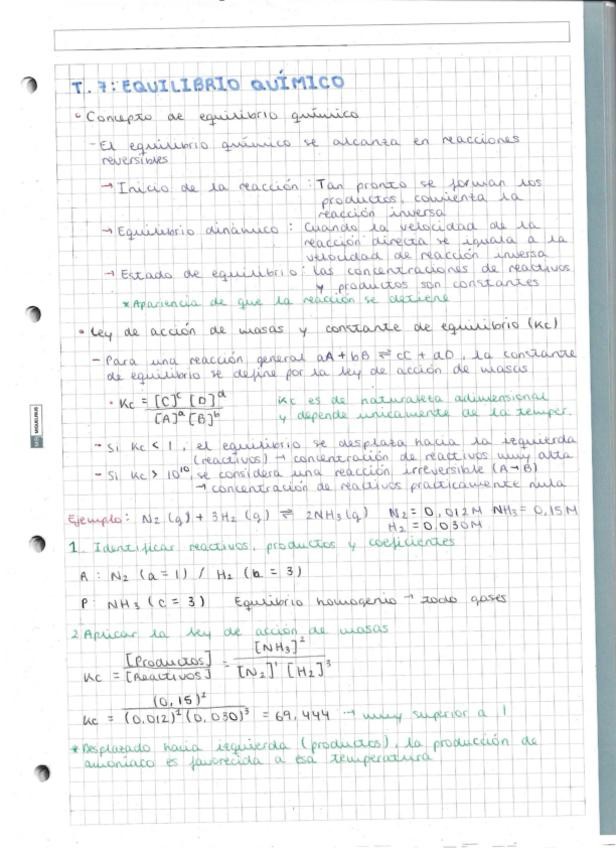 T. 7: EQUILIBRIO QUÍMICO
• Concepto de equilibrio químico
- El equilibrio químico se alcanza en reacciones
reversibles
→ Inicio de la reacción: Tan pronto se forman los
productos, comienta la
reacción inversa
→ Equilibrio dinámico: Cuando la velocidad de la
reacción directa se iguala a la
velocidad de reacción inversa
→ Estado de equilibrio: las concentraciones de reactivos
y productos son constantes
* Apariencia de que la reacción se detiene
• Ley de acción de masas y constante de equilibrio (Kc)
- Para una reacción general aA + bB ⇌ cC + dD, la constante
de equilibrio se define por la ley de acción de masas
• Kc = [C]ᶜ [D]ᵈ / [A]ᵃ [B]ᵇ
Kc es de naturaleta adimensional
y depende unicamente de la temper.
- Si Kc < 1, el equilibrio se desplaza hacia la izquierda
(reactivos) → concentración de reactivos muy alta
- Si Kc > 10¹⁰, se considera una reacción irreversible (A→B)
→ concentración de reactivos practicamente nula
Ejemplo: N₂ (g) + 3H₂ (g) ⇌ 2NH₃ (g) N₂ = 0,012M NH₃ = 0,15M
H₂ = 0,030M
1. Identificar reactivos, productos y coeficientes
A: N₂ (a = 1) / H₂ (b = 3)
P: NH₃ (c = 3) Equilibrio homogenio → todo gases
2 Aplicar la ley de acción de masas
Kc = [Productos] / [Reactivos] = [NH₃]² / [N₂]¹ [H₂]³
Kc = (0,15)² / (0,012)¹ (0,030)³ = 69,444 → muy superior a 1
* Desplazado hacia izquierda (productos), la producción de
amoníaco es favorecida a esa temperatura
MIQUELRIUS